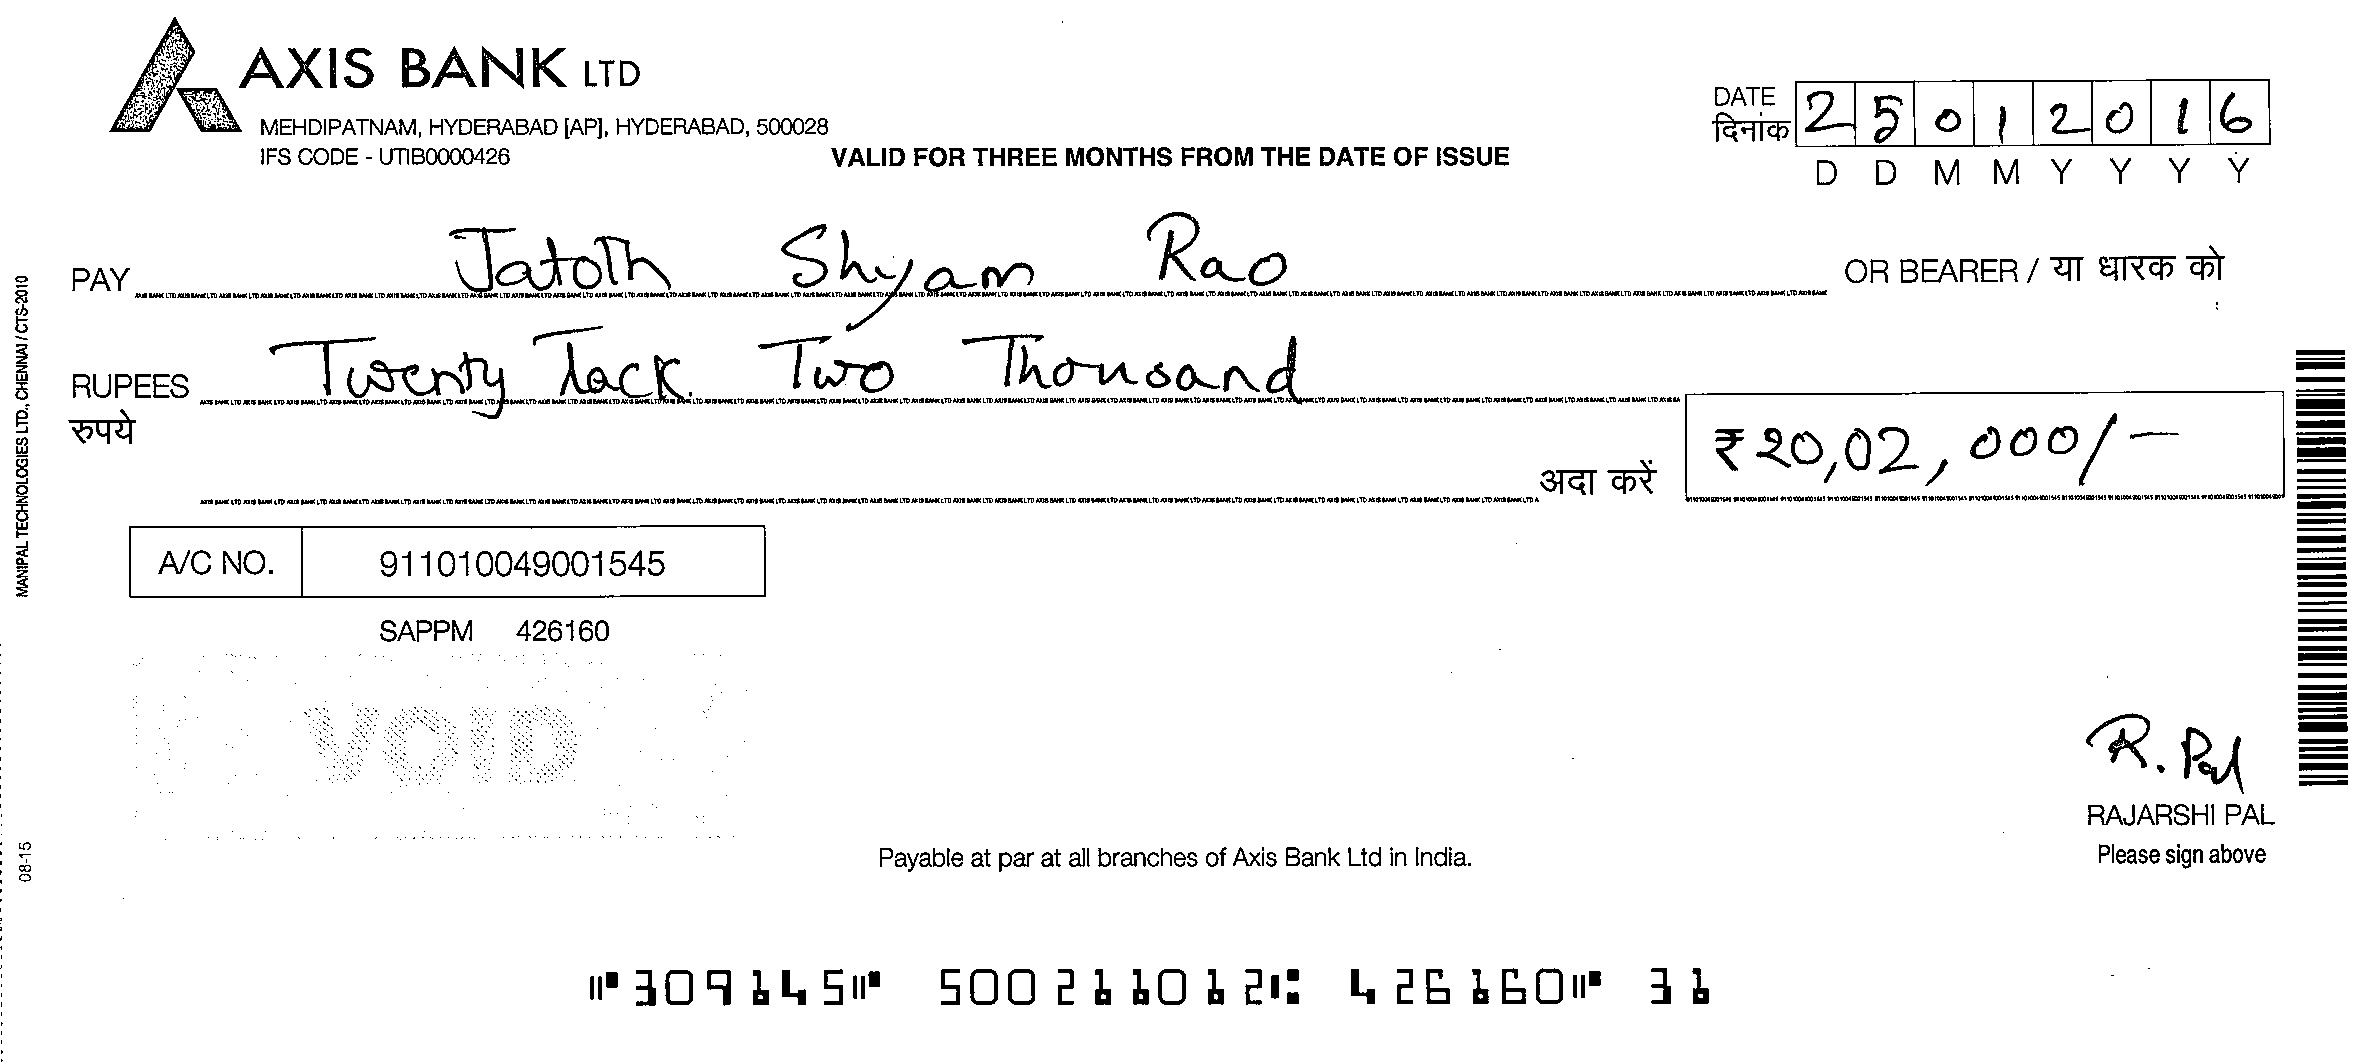 AXIS BANK LTD
MEHDIPATNAM, HYDERABAD [AP], HYDERABAD, 500028
IFS CODE - UTIB0000426
VALID FOR THREE MONTHS FROM THE DATE OF ISSUE
DATE
दिनांक
2 5 0 1 2 0 1 6
D D M M Y Y Y Y
PAY Jatoth Shyam Rao OR BEARER / या धारक को
RUPEES Twenty lack Two Thousand
रुपये
अदा करें ₹20,02,000/-
A/C NO. 911010049001545
SAPPM 426160
VOID
R. Pal
RAJARSHI PAL
Please sign above
Payable at par at all branches of Axis Bank Ltd in India.
⑈309145⑈ 500211012⑆ 426160⑈ 31
MANIPAL TECHNOLOGIES LTD., CHENNAI / CTS-2010
08-15